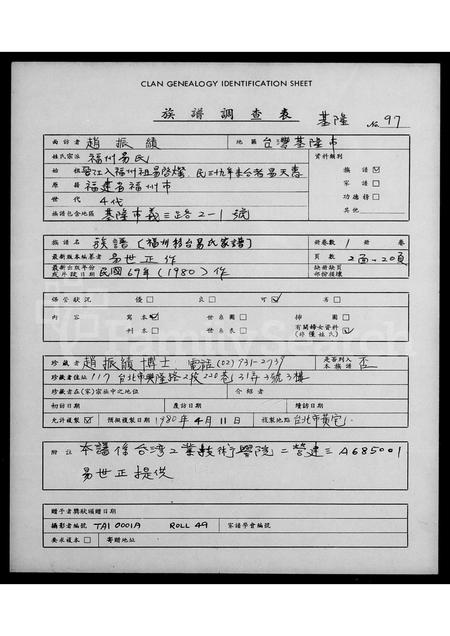 CLAN GENEALOGY IDENTIFICATION SHEET
族譜調查表 基隆 No. 97
面訪者 趙振績 地區 台灣基隆市
姓氏宗派 福州易氏 資料類別
始祖 民三十九年來台者易天壽 族譜 ☑
原籍 福建省福州市 家譜 □
世代 4代 功德榜 □
族譜包含地區 基隆市義三路2-1號 其他
族譜名 族譜(福州移台易氏家譜) 冊卷數 1 冊卷
最新版本編纂者 易世正作 頁數 2面-20頁
最新出版年份或片段日期 民國69年(1980)作 缺冊缺頁部份損壞
保管狀況 優 □ 良 □ 可 ☑ 劣 □
內容 寫本 ☑ 世系圖 □ 掃圖 □
刊本 □ 世系表 □ 有關婦女資料(非僅姓氏)
珍藏者 趙振績博士 電話(02)931-2739 是否列入本族譜 否
珍藏者住址 117台北市興隆路2段220巷31弄3號3樓
珍藏者在(家)宗祧中之地位 介紹者
初訪日期 度訪日期 續訪日期
允許複製 ☑ 預擬複製日期 1980年4月11日 複製地點 台北市黃宅
附註 本譜係台灣工業技術學院二營建三A685001
易世正提供
贈予者獎狀頒贈日期
攝影者編號 TAI 0001A ROLL 49 家譜學會編號
要求複本 □ 寄贈地址